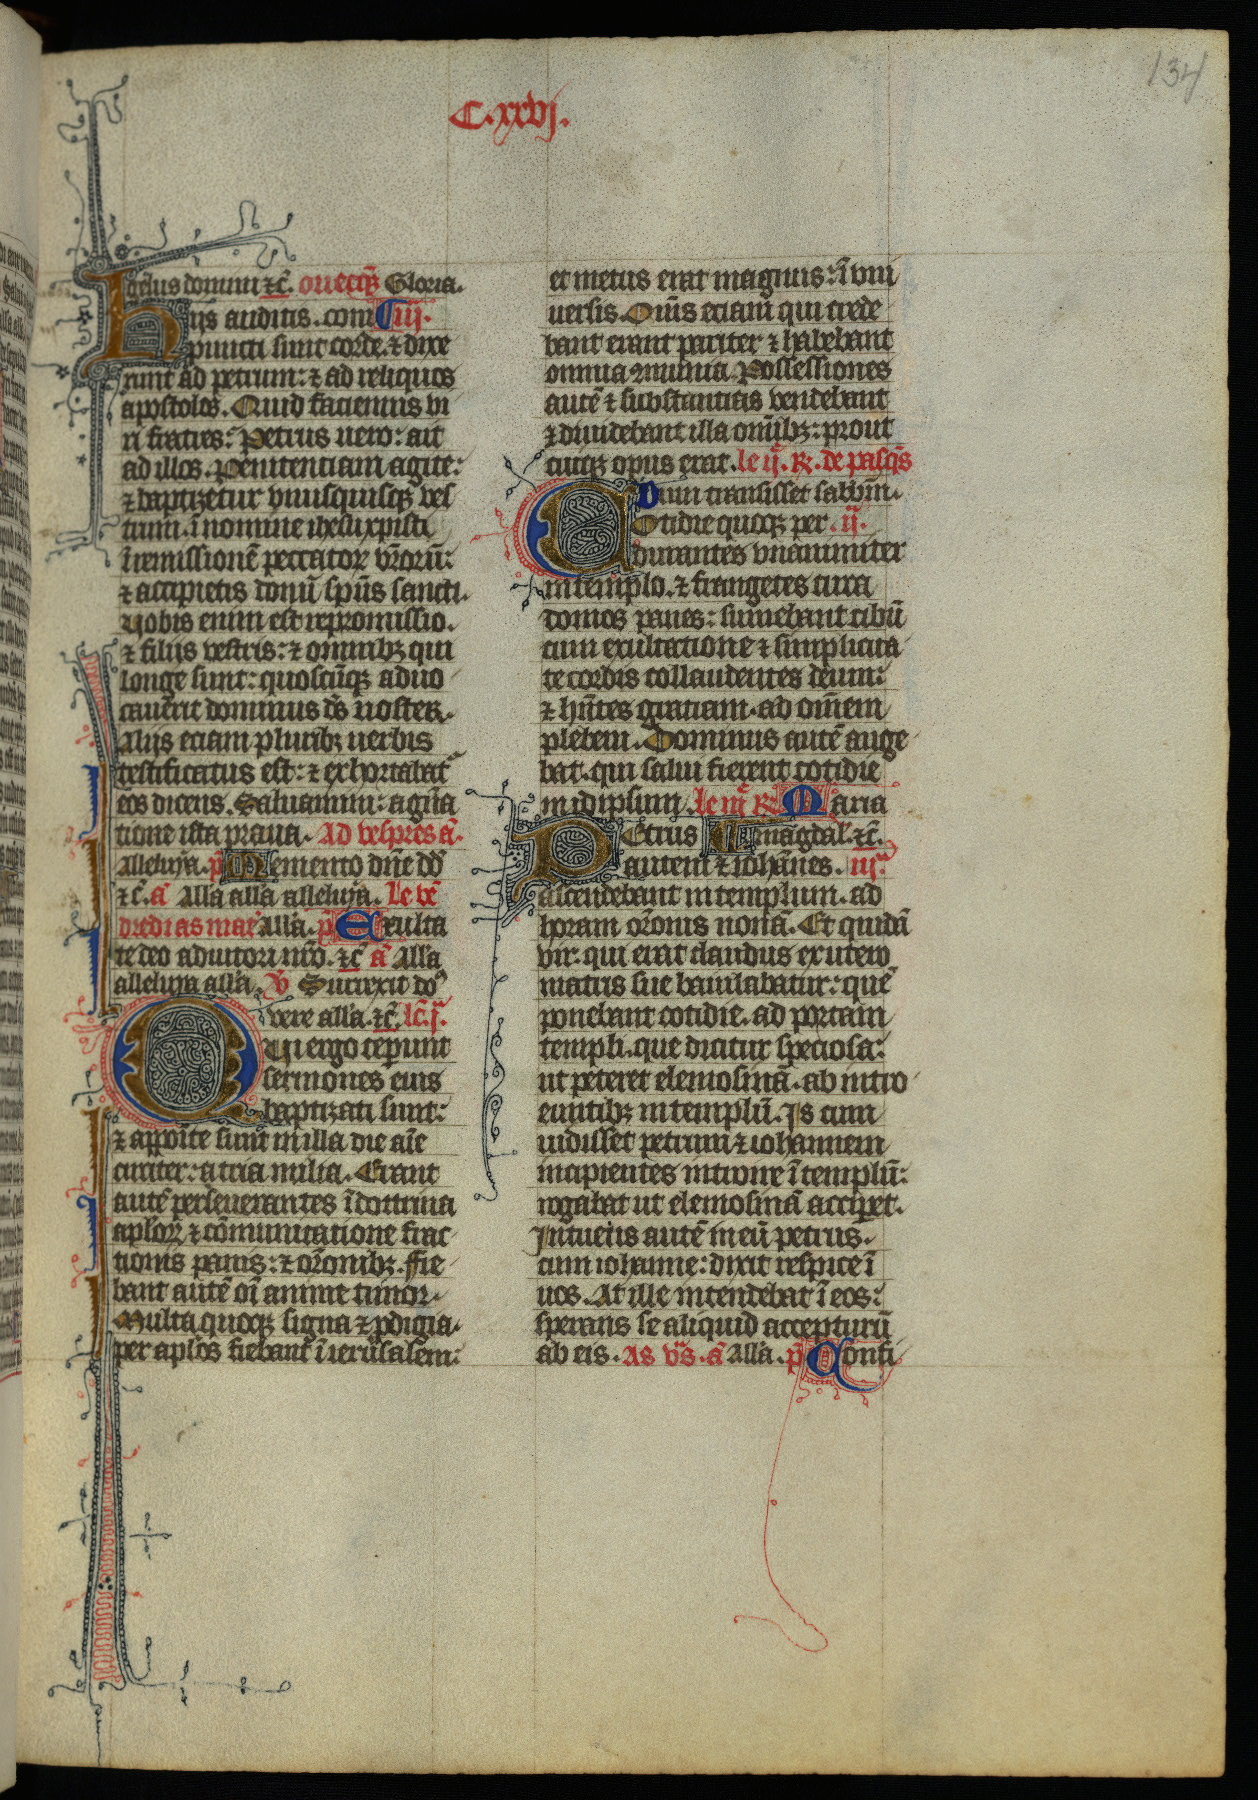 134
C.xxvj.
gelus domini ⁊c̄. ouecq̄s Gloria.
Hijs auditis. com iij.
puncti sunt corde. ⁊ dixe
runt ad petrum: ⁊ ad reliquos
apostolos. Quid faciemus vi
ri fratres: Petrus uero: ait
ad illos. Penitentiam agite:
⁊ baptizetur vnusquisqꝫ ves
trum. ī nomine ihesu xpisti
ī remissionē peccatoꝝ vr̄orū:
⁊ accipietis donū sp̄us sancti.
Uobis enim est repromissio.
⁊ filijs vestris: ⁊ omnibꝫ qui
longe sunt: quoscūqꝫ aduo
cauerit dominus ds̄ noster.
Alijs eciam pluribꝫ uerbis
testificatus est: ⁊ exhortabat᷑
eos dicens. Saluamini: a gn̄a
tione ista praua. Ad vespres ā.
Alleluya. p̄ Memento dn̄e dd̄
⁊c̄. ā All'a all'a alleluya. Le vē
dredi as mat᷑ All'a. p̄ Exulta
te deo adiutori nr̄o. ⁊c̄ ā All'a
alleluya all'a. ℣ Surrexit do᷒
vere all'a. ⁊c̄. lc̄. j.
Qui ergo ceperunt
sermones eius
baptizati sunt:
⁊ appoīte sunt in illa die aīe
circiter: a tria milia. Erant
autē perseuerantes ī doctrina
ap̄loꝝ ⁊ cōmunicatione frac
tionis panis: ⁊ or̄onibꝫ. Fie
bant autē oī anime timor.
Multa quoqꝫ signa ⁊ ꝓdigia.
per ap̄los fiebant ī ierusalem:
et metus erat magnus: ī vni
uersis. Om̄s eciam qui crede
bant erant pariter ⁊ habebant
omnia ꝯmunia. Possessiones
autē ⁊ substantias vendebant
⁊ diuidebant illa om̄ibꝫ: prout
cuiqꝫ opus erat. le ij. ℟. de pasq̄s
Dum transisset sabb'm.
Cotidie quoqꝫ per. ij.
durantes vnanimiter
in templo. ⁊ frangētes circa
domos panes: sumebant cibū
cum exultatione ⁊ simplicita
te cordis collaudentes deum:
⁊ hn̄tes gratiam. ad om̄em
plebem. Dominus autē auge
bat. qui salui fierent cotidie
in idipsum. le iij ℟ Maria
Petrus magdal'. ⁊c̄.
autem ⁊ iohānes. iij.
ascendebant in templum. ad
horam or̄onis nonā. Et quidā
vir: qui erat claudus ex utero
matris sue baiulabatur: quē
ponebant cotidie. ad portam
templi. que dicitur speciosa:
ut peteret elemosinā. ab intro
euntibꝫ in templū. Is cum
uidisset petrum ⁊ iohannem
incipientes intrare ī templū:
rogabat ut elemosinā acciꝑet.
Intuens autē in eū petrus.
cum iohanne: dixit respice ī
nos. At ille intendebat ī eos:
sperans se aliquid accepturū
ab eis. As vs̄. ā All'a. p̄ Confi